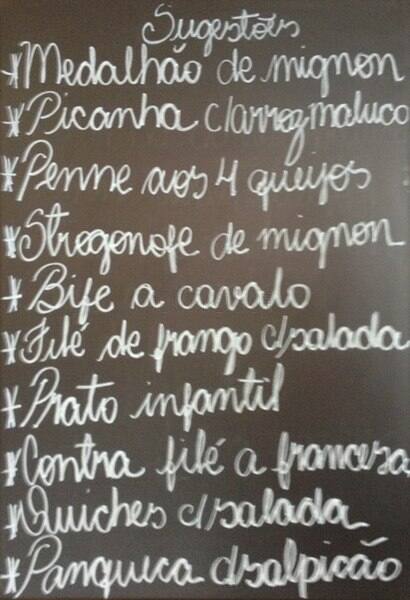 Sugestões
*Medalhão de mignon
*Picanha c/arroz maluco
*Penne aos 4 queijos
*Strogonofe de mignon
*Bife a cavalo
*Filé de frango c/salada
*Prato infantil
*Contra filé a francesa
*Quiches c/salada
*Panqueca c/salpicão